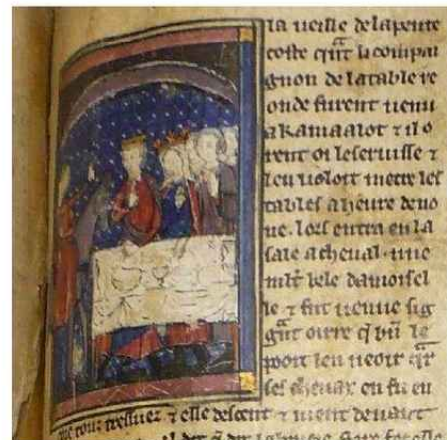 la ueille de lapente
coste qñt li compai
gnon de latable re
onde furent uenu
a kamaalot ⁊ il o
rent oi leseruisse ⁊
leu uoloit metre les
tables a heure de no
ne. lors entra en la
sale a cheual une
mlt bele damoisel
le ⁊ fut uenue sig
gñt oirre q̃ bñ le
pooit leu ueoir qr
ses cheuax en fu en
tressuez ⁊ elle descent ⁊ uient deuant